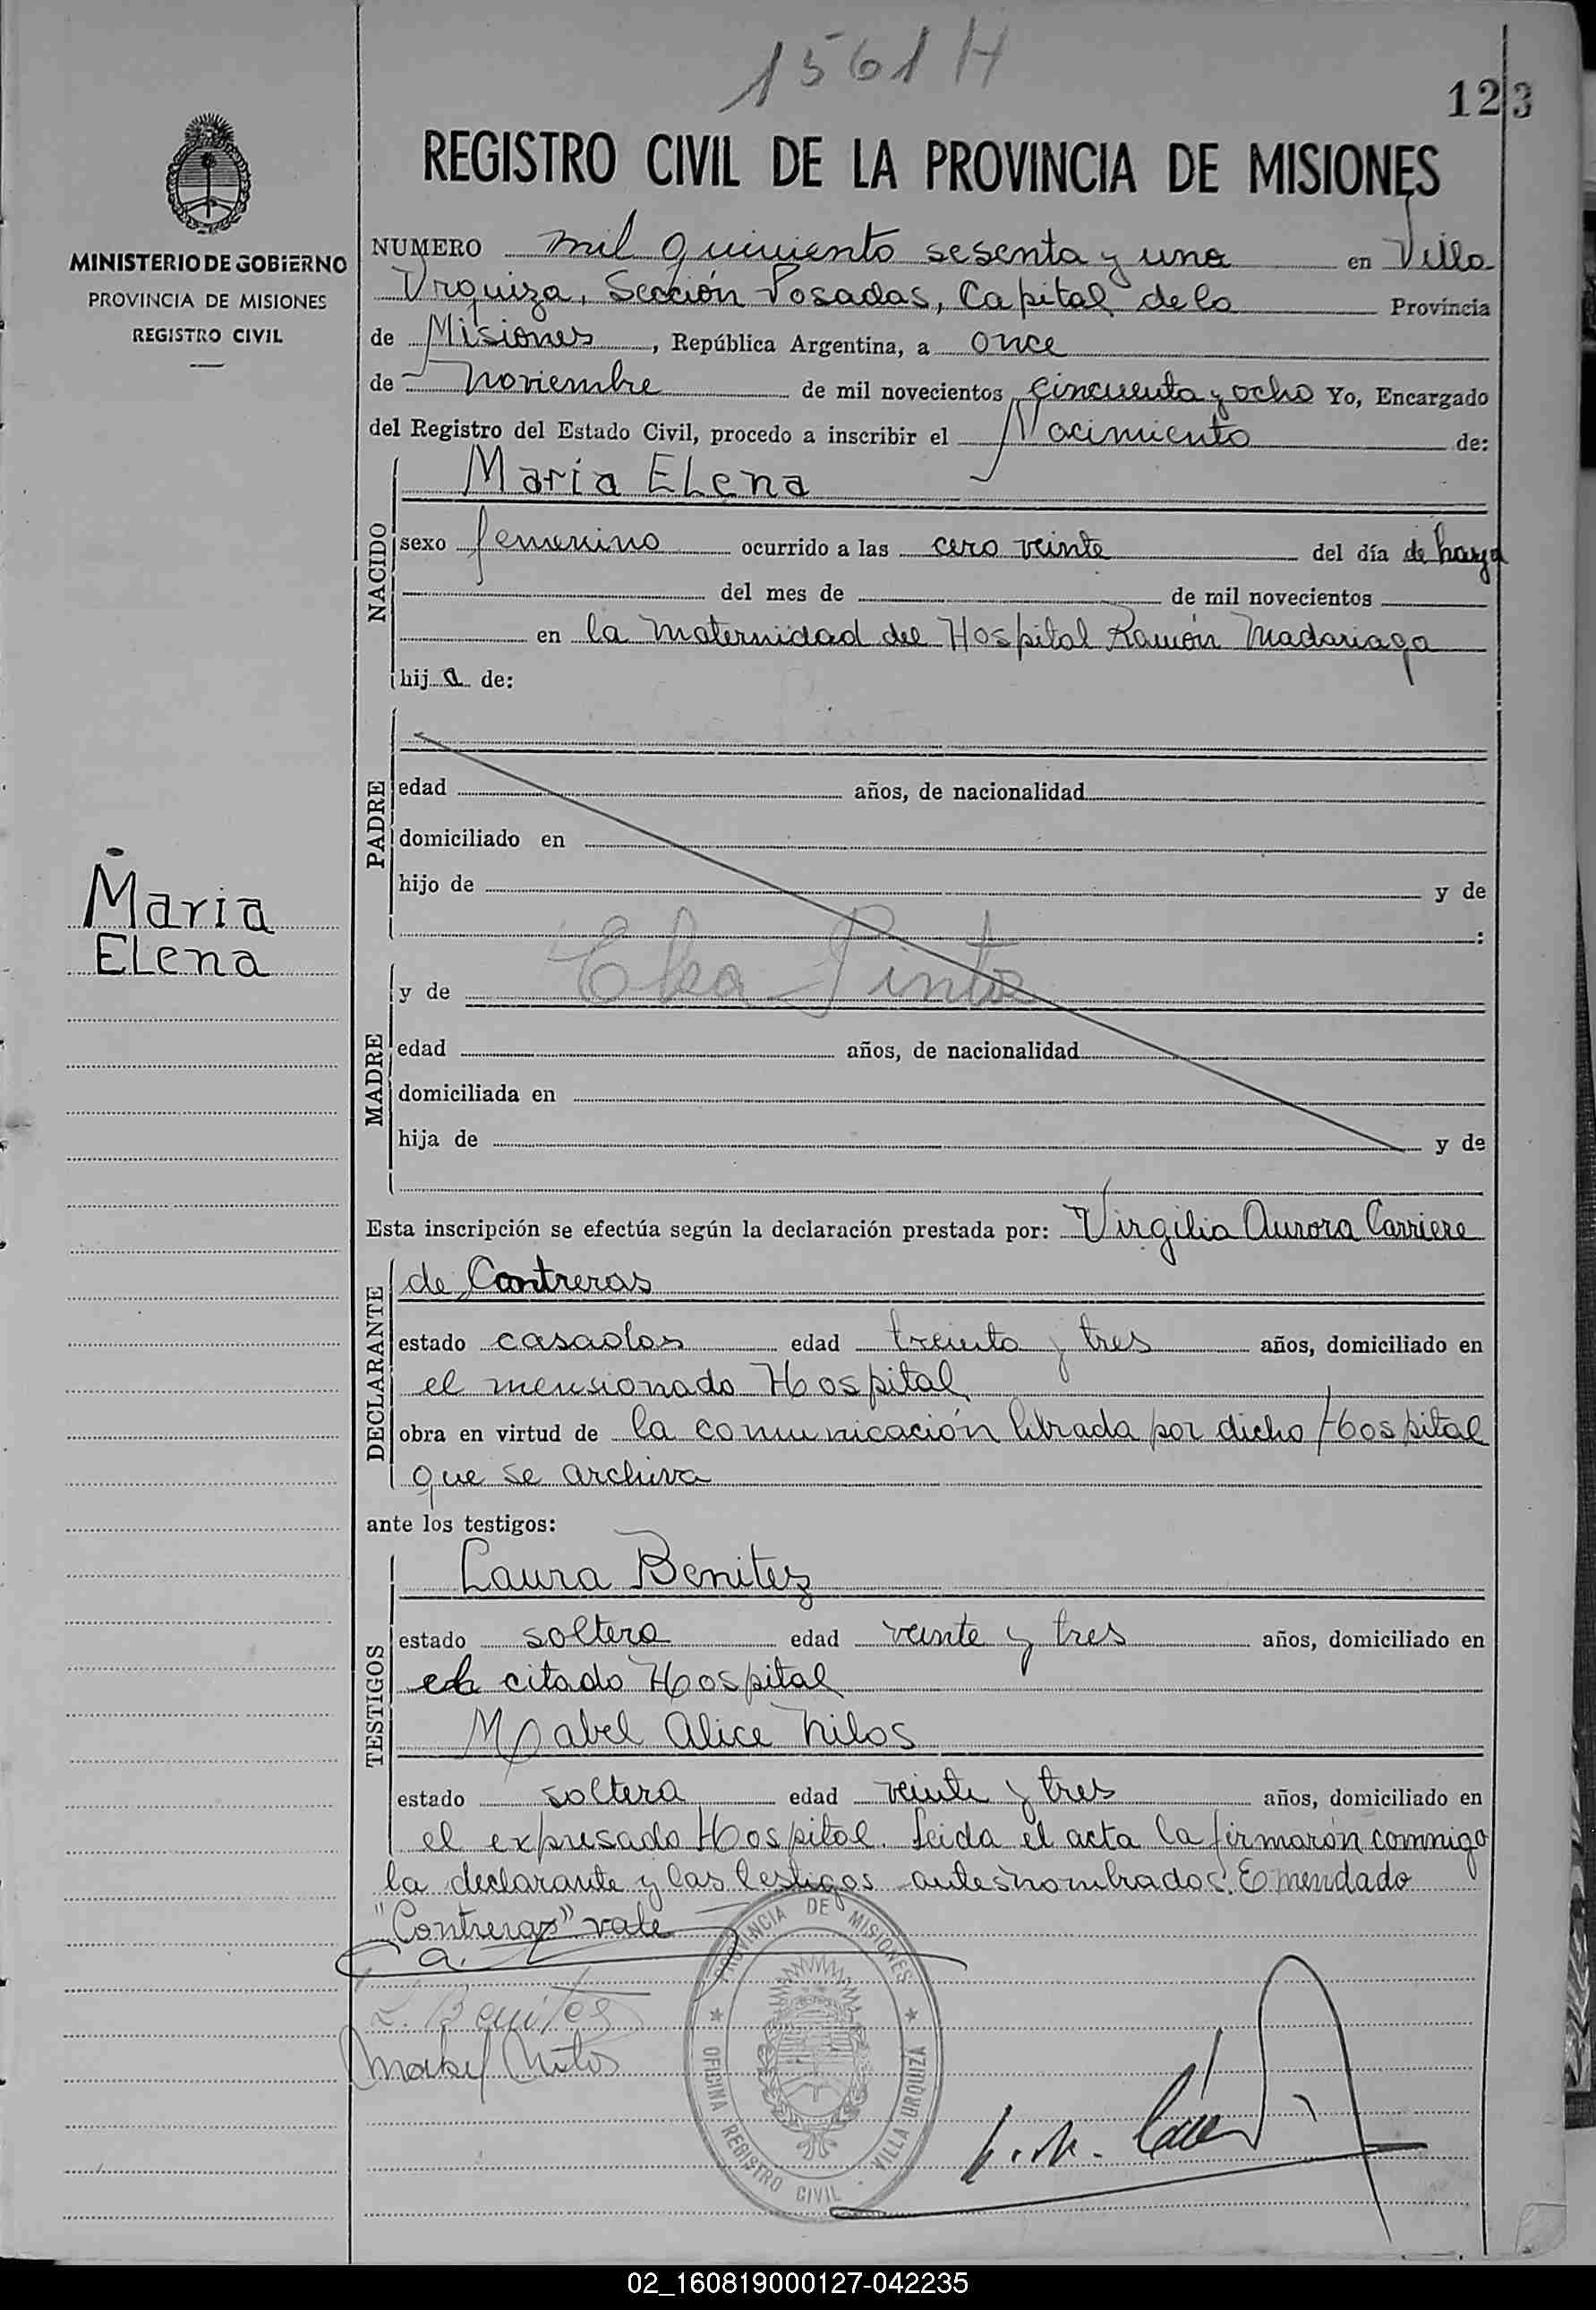 1561 H
123
REGISTRO CIVIL DE LA PROVINCIA DE MISIONES
MINISTERIO DE GOBIERNO
PROVINCIA DE MISIONES
REGISTRO CIVIL
NUMERO mil quiniento sesenta y uno en Villa
Urquiza, Sección Posadas, Capital de la Provincia
de Misiones, República Argentina, a once
de noviembre de mil novecientos cincuenta y ocho Yo, Encargado
del Registro del Estado Civil, procedo a inscribir el Nacimiento de:
NACIDO
María Elena
sexo femenino ocurrido a las cero veinte del día de
del mes de de mil novecientos
en la maternidad del Hospital Ramón Madariaga
hija de:
PADRE
edad años, de nacionalidad
domiciliado en
hijo de y de
:
Maria
Elena
MADRE
y de Elsa Pinto
edad años, de nacionalidad
domiciliada en
hija de y de
Esta inscripción se efectúa según la declaración prestada por: Virgilia Aurora Carriere
DECLARANTE
de Contreras
estado casada edad treinta y tres años, domiciliado en
el mensionado Hospital
obra en virtud de la comunicación librada por dicho Hospital
que se archiva
ante los testigos:
TESTIGOS
Laura Benitez
estado soltera edad veinte y tres años, domiciliado en
el citado Hospital
Mabel Alice Milos
estado soltera edad veinte y tres años, domiciliado en
el expresado Hospital. Leida el acta la firmarón conmigo
la declarante y las testigos antesnombrados. Emendado
"Contreras" vale
L. Benitez
Mabel Milos
PROVINCIA DE MISIONES
OFICINA REGISTRO CIVIL - VILLA URQUIZA
02_160819000127-042235